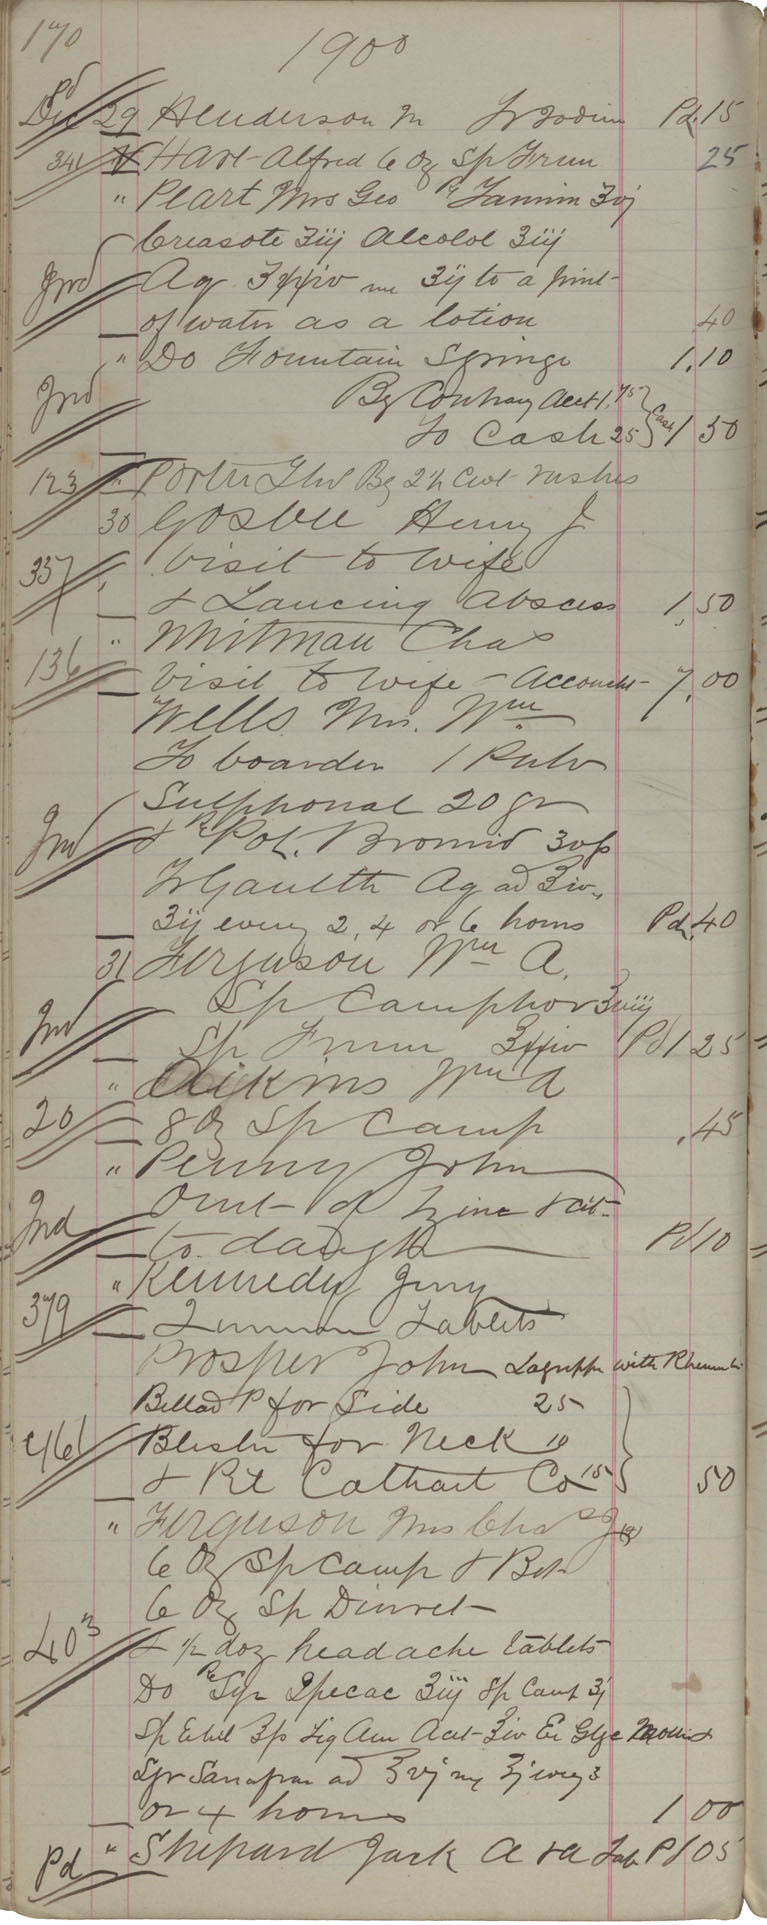 170
1900
Pd
Dec 29 Henderson M Tr Iodine Pd .15
341 " Hart Alfred 6 Oz Sp Frum 25
" Peart Mrs Geo Rx Tannin ʒvj
Creasote ʒiij Alcolol ʒiij
Jnd Aq ʒxxiv ʒij to a pint
of water as a lotion 40
" Do Fountain Syringe 1.10
Jnd By Contray Acct 1.75
To Cash 25 } Cash 1 50
123 " Porter By 2½ Cwt rushes
30 Gosbee Henry J
337 " Visit to Wife
& Lancing Abscess 1.50
" Whitman Chas
136 Visit to Wife - Account - 7.00
Wells Mrs. Wm
To boarder 1 Pulv
Sulphonal 20 gr
Jnd & Rx Pot. Bromid
Tr Gaulth Aq ad ʒiv
ʒij every 2, 4 or 6 hours Pd .40
31 Ferguson Wm A.
Sp Camphor ʒviij
Jnd Sp Frum ʒxxiv Pd 1 25
" Aikins Wm A
20 8 Oz Sp Camp .45
" Penny John
Oint of Zinc
Jnd to daugh Pd 10
" Kennedy Jerry
379 Tablets
Prosper John Lagrippe with Rheum
Bellad P for Side 25
461 Blister for Neck 10
& Rx Cathart Co 15 } 50
" Ferguson Mrs Chas J
6 Oz Sp Camp &
6 Oz Sp Diuret
403 & ½ doz headache tablets
Do Rx Syr Ipecac ʒiij Sp Camp ʒj
Sp Ethel Liq Am Acet ʒiv Glyc
Syr ad ʒvj ʒj every 3
or 4 hours 1 00
Pd " Shepard Jack A & A Tab Pd 05